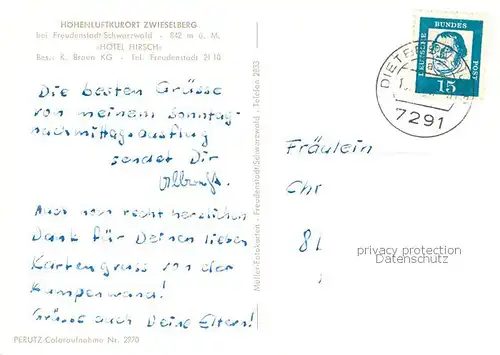 HÖHENLUFTKURORT ZWIESELBERG
bei Freudenstadt-Schwarzwald - 842 m ü. M.
»HOTEL HIRSCH«
Bes.: K. Braun KG - Tel. Freudenstadt 2110
Die besten Grüsse
von meinem Sonntag-
nachmittagsausflug
sendet Dir
Auch recht herzlichen
Dank für Deinen lieben
Kartengruss von der
Kampenwand!
Grüsse auch Deine Eltern!
PERUTZ-Coloraufnahme Nr. 2970
Müller-Fotokarten - Freudenstadt-Schwarzwald - Telefon 2033
DEUTSCHE
BUNDES
POST
15
7291
Fräulein
Chr
8
privacy protection
Datenschutz